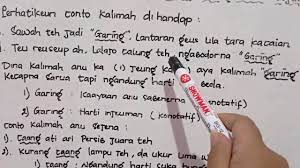 Perhatikeun conto kalimah di handap :
1. Sawah teh jadi "Garing", lantaran geus lila tara kacaian
Teu reuseup ah, lalajo calung teh ngabodorna "Garing"
Dina kalimah anu ka (1) jeung ka aya kalimah "garing"
Kecapna sarua tapi ngandung harti beda.
1) Garing : Kaayaan anu saenyana notatif)
2) Garing : Harti injeuman (konotatif)
Conto kalimah anu sejena :
1). Caang ati ari Persis juara teh
2). Kurang caang lampu teh, da ukur lima w
: ngandung harti
SNOWMAN